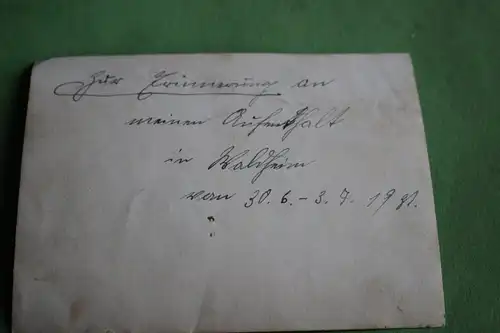 Zur Erinnerung an
meinen Aufenthalt
in Waldheim
von 30. 6. - 3. 7. 19